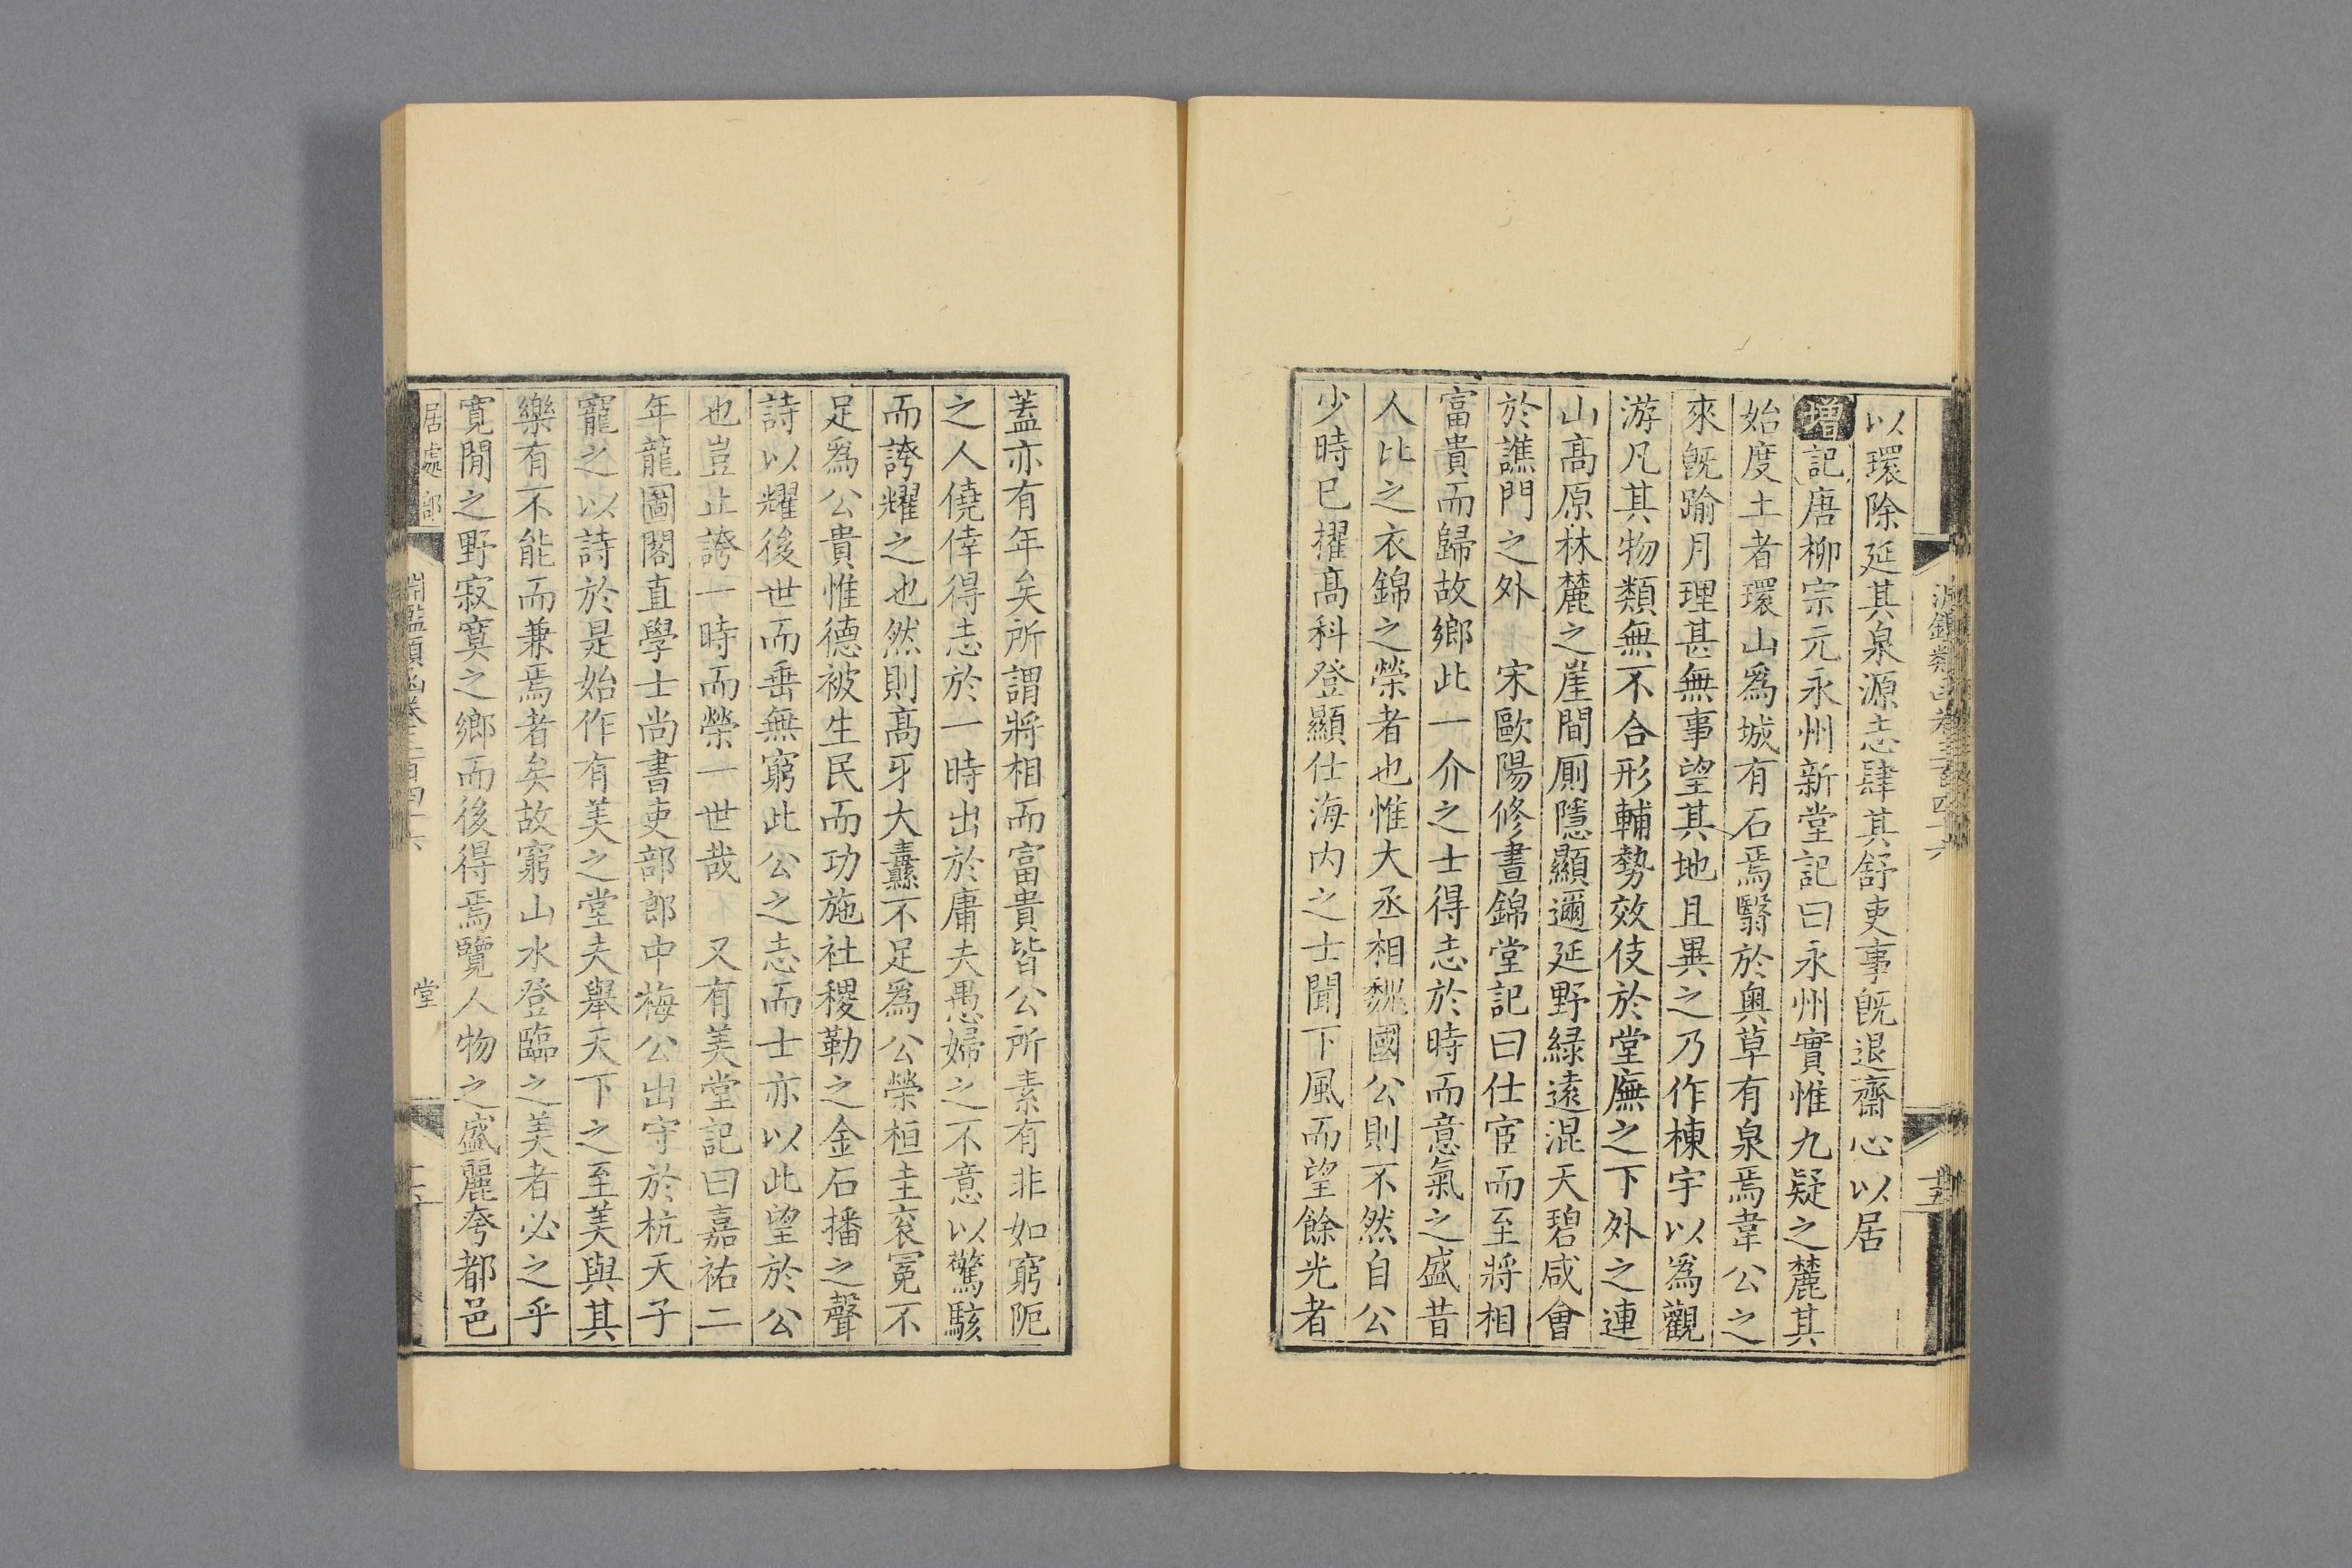 以環除延其泉源志肆其舒吏事旣退齋心以居
增記唐柳宗元永州新堂記曰永州實惟九疑之麓其
始度土者環山爲城有石焉翳於奥草有泉焉韋公之
來旣踰月理甚無事望其地且異之乃作棟宇以爲觀
游凡其物類無不合形輔勢效伎於堂廡之下外之連
山高原林麓之崖間厠隱顯邇延野緑遠混天碧咸會
於譙門之外 宋歐陽修晝錦堂記曰仕宦而至將相
富貴而歸故鄉此一介之士得志於時而意氣之盛昔
人比之衣錦之榮者也惟大丞相魏國公則不然自公
少時已擢高科登顯仕海内之士聞下風而望餘光者
蓋亦有年矣所謂將相而富貴皆公所素有非如窮阨
之人僥倖得志於一時出於庸夫愚婦之不意以驚駭
而誇耀之也然則高牙大纛不足爲公榮桓圭衮冕不
足爲公貴惟德被生民而功施社稷勒之金石播之聲
詩以耀後世而垂無窮此公之志而士亦以此望於公
也豈止誇一時而榮一世哉 又有美堂記曰嘉祐二
年龍圖閣直學士尚書吏部郎中梅公出守於杭天子
寵之以詩於是始作有美之堂夫舉天下之至美與其
樂有不能而兼焉者矣故窮山水登臨之美者必之乎
寬閒之野寂寞之鄉而後得焉覽人物之盛麗夸都邑
居處部 淵鑑類函卷三百四十六 堂